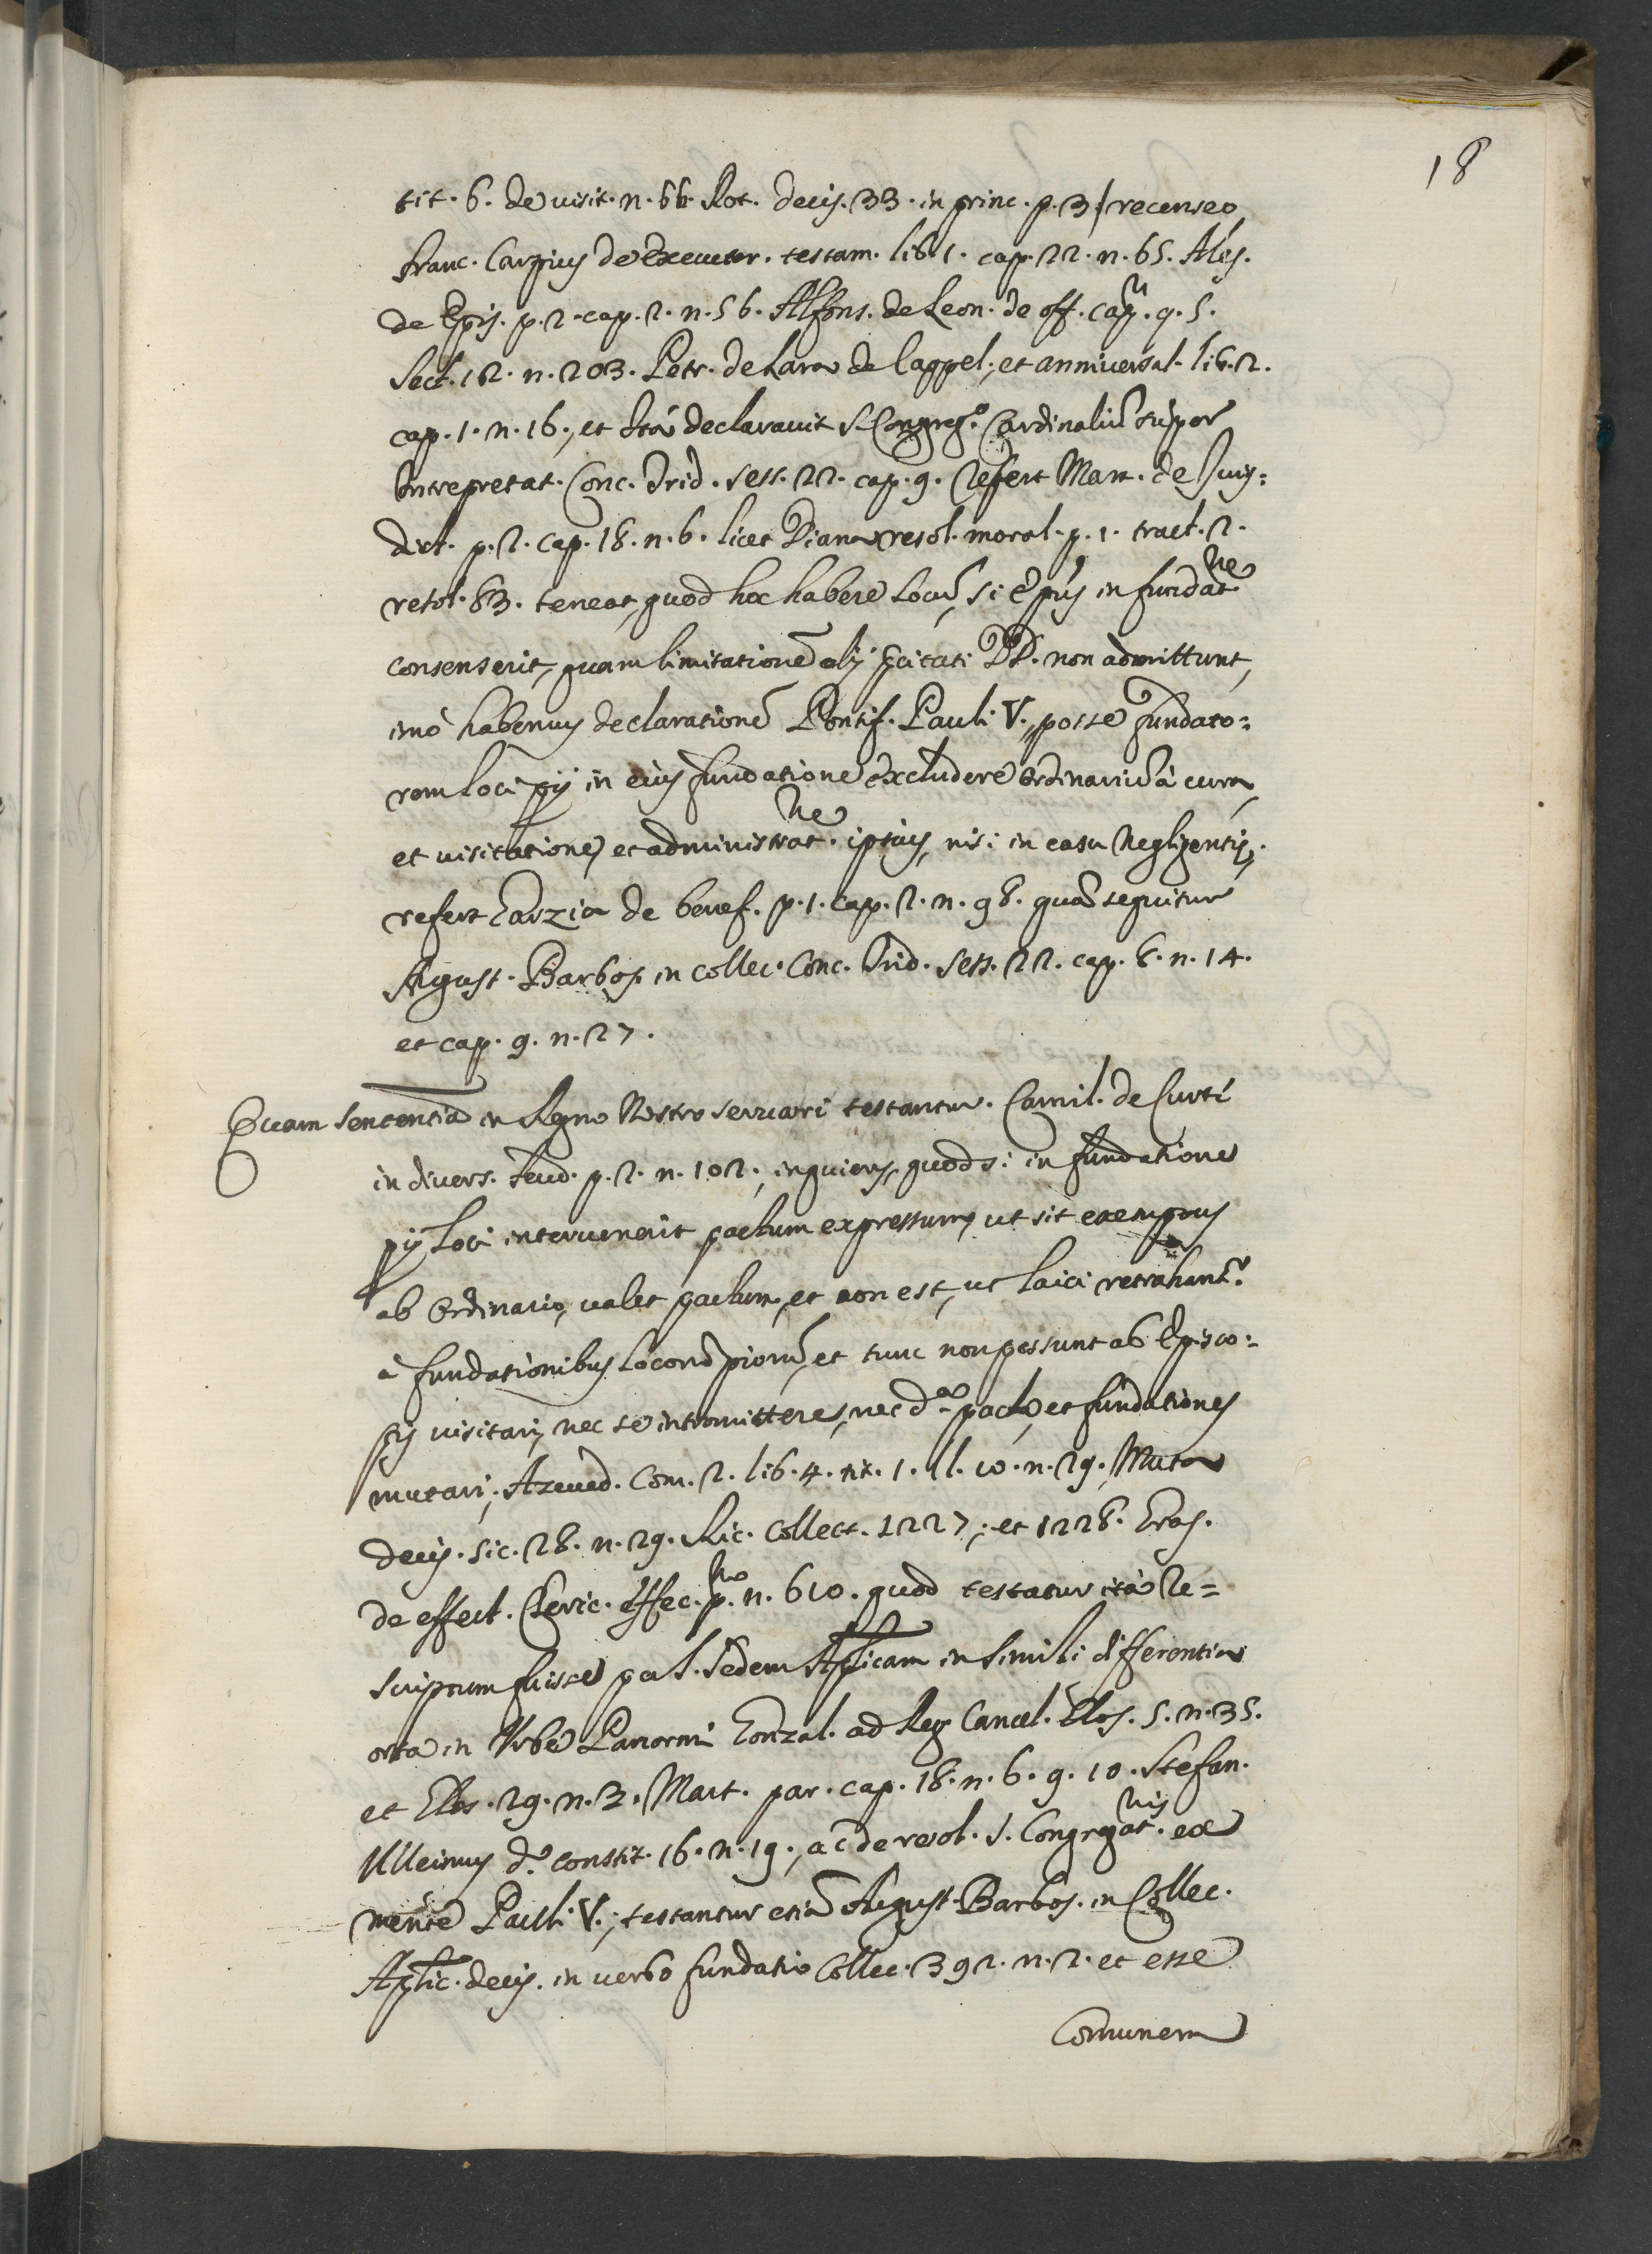 18
tit. 6. de visit. n. 66. Rot. decis. 33. in princ. p. 3. recenseo
Franc. Carpius de Executor. testam. lib. 1. cap. 22. n. 65. Ales.
de Epis. p. 2. cap. 2. n. 56. Alfons. de Leon. de off. capñ. q. 5.
Sect. 12. n. 203. Petr. de Lara de Cappel., et anniversal. lib. 2.
cap. 1. n. 16., et ità declaravit S. Congreg.o Cardinaliũ super
Intrepretat. Conc. Trid. sess. 22. cap. 9. refert Mart. de Juris=
dict. p. 2. cap. 18. n. 6. licet Diana resol. moral. p. 1. tract. 2.
resol. 83. teneat, quod hoc habere locũ, si Epũs in fundatne
consenserit, quam limitationẽ alij ꝑcitati DD. non admittunt,
imò habemus declarationẽ Pontif. Pauli V., posse fundato=
rem loci pij in eius fundatione excludere ordinariũ à cura
et visitatione, et administrat.ne ipsius, nisi in casu negligentiæ,
refert Garzia de benef. p. 1. cap. 2. n. 98. quẽ sequitur
August. Barbos. in collec. Conc. Trid. sess. 22. cap. 8. n. 14.
et cap. 9. n. 27.
Quam sententiã in Regno Nostro servari testantur. Camil. de Curti
in divers. feud. p. 2. n. 102., inquiens, quod si in fundatione
pij loci intervenerit pactum expressum, ut sit exemptus
ab ordinario, valet pactum, et non est, ut laici retrahant.r
à fundationibus locorũ piorũ, et tunc non possunt ab Episco=
pis visitari, nec se intromittere, nec d.a pacta, et fundationes
mutari; Azeved. Com. 2. lib. 4. tit. 1. ll. 10. n. 29. Muta
decis. sic. 28. n. 29. Ric. collect. 1227., et 1228. Eras.
de effect. Cleric. effec. p.mo n. 610. quod testatur ità re=
scriptum fuisse per S. Sedem Aplicam in simili differentia
orta in Urbe Panormi Gonzal. ad Reg. Cancel. Glos. 5. n. 35.
et Glos. 29. n. 3. Mart. par. cap. 18. n. 6. 9. 10. Stefan.
d.o constit. 16. n. 19., ac de resol. S. Congregat.nis ex
mente Pauli V., testantur etiã August. Barbos. in Collec.
Aplic. decis. in verbo fundatio Collec. 392. n. 2. et esse
Comunem